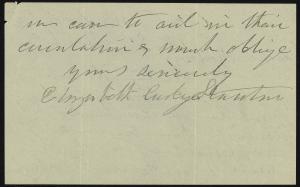 can to aid in their
circulation & much oblige
yours sincerely
Elizabeth Cady Stanton